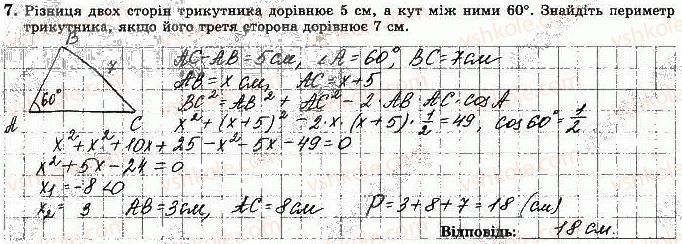 7. Різниця двох сторін трикутника дорівнює 5 см, а кут між ними 60°. Знайдіть периметр
трикутника, якщо його третя сторона дорівнює 7 см.
B
7
60°
A
C
AC-AB=5см, ∠A=60°, BC=7см
AB=x см, AC=x+5
BC²=AB²+AC²-2·AB·AC·cosA
x²+(x+5)²-2·x·(x+5)·1/2=49, cos60°=1/2
x²+x²+10x+25-x²-5x-49=0
x²+5x-24=0
x₁=-8<0
x₂= 3 AB=3см, AC=8см P=3+8+7=18 (см)
Відповідь: 18 см.